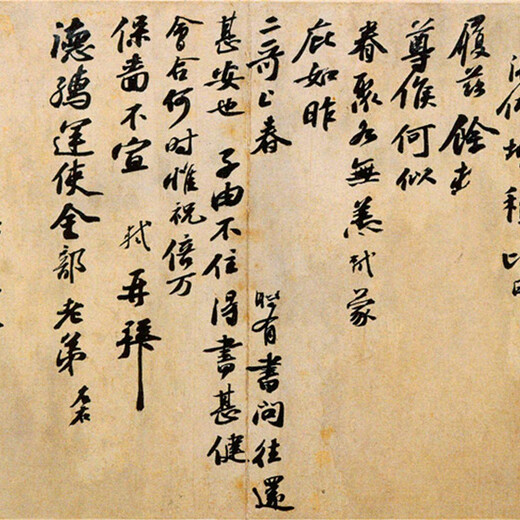 履茲餘春
尊候何似
眷聚各無恙軾蒙
庇如昨
二哥上春 有書問往還
甚安也 子由不住得書甚健
會合何时惟祝倍万
保嗇不宣 軾再拜
德孺運使金部老弟